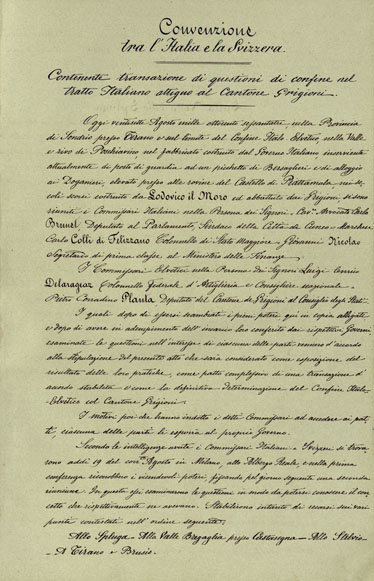 Convenzione
tra l'Italia e la Svizzera.
Contenente transazione di questioni di confine nel
tratto Italiano attiguo al Cantone Grigioni.
Oggi ventisette Agosto mille ottocento sessantatre, nella Provincia
di Sondrio presso Tirano e sul limite del Confine Italo Elvetico, nella Valle
e rivo di Poschiavino nel fabbricato costruito dal Governo Italiano inserviente
attualmente di posto di guardia ad un picchetto di Bersaglieri e di alloggio
ai Doganieri, elevato presso alle rovine del Castello di Piattamala nei se-
coli scorsi costruito da Lodovico il Moro ed abbattuto dai Grigioni si sono
riuniti i Commissari Italiani nella Persona dei Signori, Cav.e Avvocato Carlo
Brunet Deputato al Parlamento, Sindaco della Città di Cuneo e Marchese
Carlo Colli di Felizzano Colonnello di Stato Maggiore Giovanni Nicolao
Segretario di prima classe al Ministero delle Finanze.
I Commissari Elvetici nella Persona dei Signori Luigi Enrico
Delarageaz Colonnello federale d'Artiglieria e Consigliere nazionale
Pietro Corradino Planta Deputato del Cantone de Grigioni al Consiglio degli Stati.
I quali dopo di essersi scambiati i pieni poteri qui in copia allegati
e dopo di avere in adempimento dell'incarico loro conferto dai rispettivi Governi
esaminate le questioni nell'interesse di ciascuna delle parti vennero d'accordo
alla stipulazione del presente atto che sarà considerato come esposizione del
risultato delle loro pratiche, come patto complessivo di una transazione d'
accordo stabilita e come la definitiva determinazione del Confine Italo-
Elvetico col Cantone Grigioni.
I motivi poi che hanno indotto i detti Commissari ad accedere ai pat-
ti, ciascuna delle parti li esporrà al proprio Governo.
Secondo le intelligenze avute i Commissari Italiani e Svizzeri si trova-
rono addì 19 del corr. Agosto in Milano, allo Albergo Reale, e nella prima
conferenza riconobbero i vicendevoli poteri, fissando pel giorno seguente una seconda
riunione. In questa essi esaminarono le questioni in modo da potersi conoscere il con-
cetto che rispettivamente ne avevano. Stabilirono intanto di recarsi sui vari
punti contestati nell'ordine seguente:
Allo Spluga - Alla Valle Bregaglia presso Castasegna - Allo Stelvio
- A Tirano e Brusio.